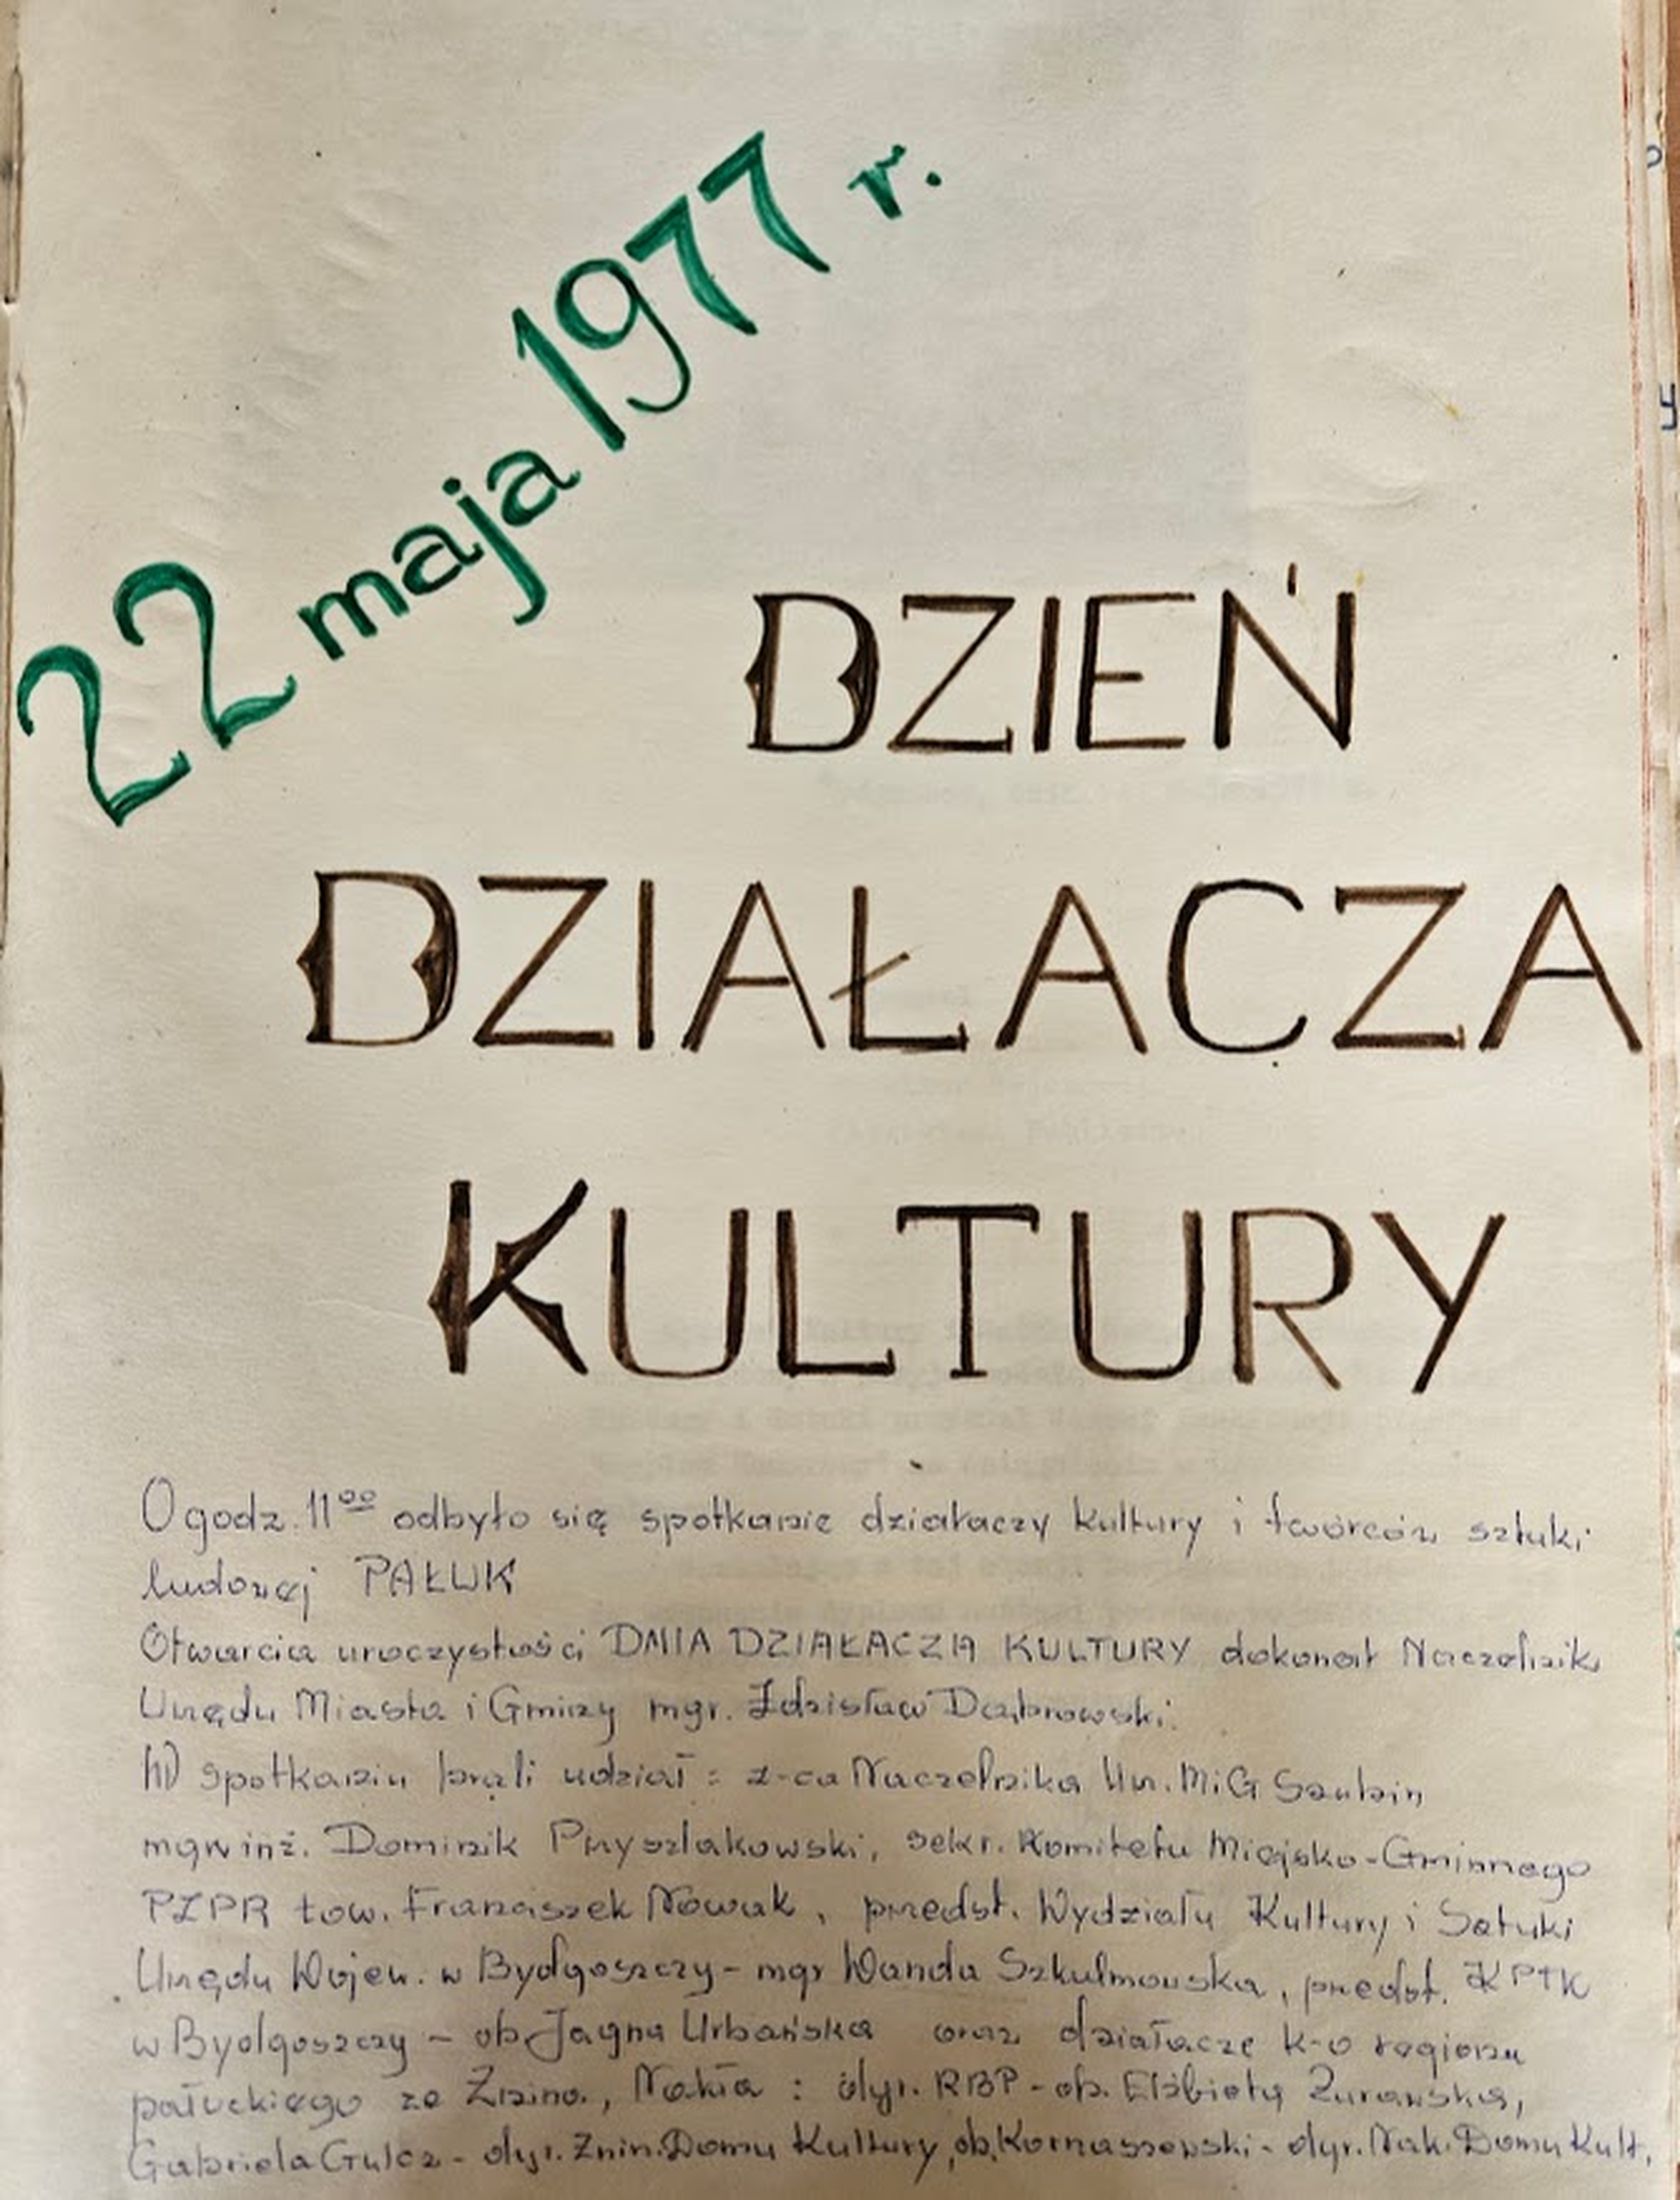 22 maja 1977 r.
DZIEŃ
DZIAŁACZA
KULTURY
O godz. 11⁰⁰ odbyło się spotkanie działaczy kultury i twórców sztuki
ludowej PAŁUK
Otwarcia uroczystości DNIA DZIAŁACZA KULTURY dokonał Naczelnik
Urzędu Miasta i Gminy mgr. Zdzisław Dąbrowski.
W spotkaniu brali udział : z-ca Naczelnika Urz. MiG Szubin
mgr inż. Dominik Przyszlakowski, sekr. Komitetu Miejsko-Gminnego
PZPR tow. Franciszek Nowak, przedst. Wydziału Kultury i Sztuki
Urzędu Wojew. w Bydgoszczy - mgr Wanda Szkulmowska, przedst. KPTK
w Bydgoszczy - ob Jagna Urbańska oraz działacze k-o regionu
pałuckiego ze Żnina, Nakła : dyr. RBP - ob. Elżbieta Żurawska,
Gabriela Gulcz - dyr. Żnin. Domu Kultury, ob. Kornaszewski - dyr. Nak. Domu Kult.,